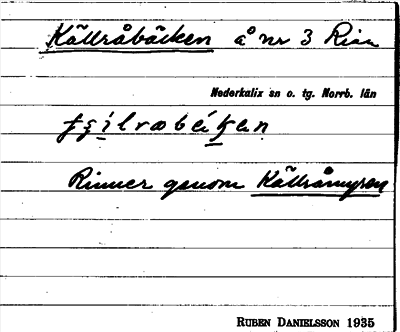 Källråbäcken å nr 3 Risn
Nederkalix sn o. tg. Norrb. län
Rinner genom Källråmyren
RUBEN DANIELSSON 1935